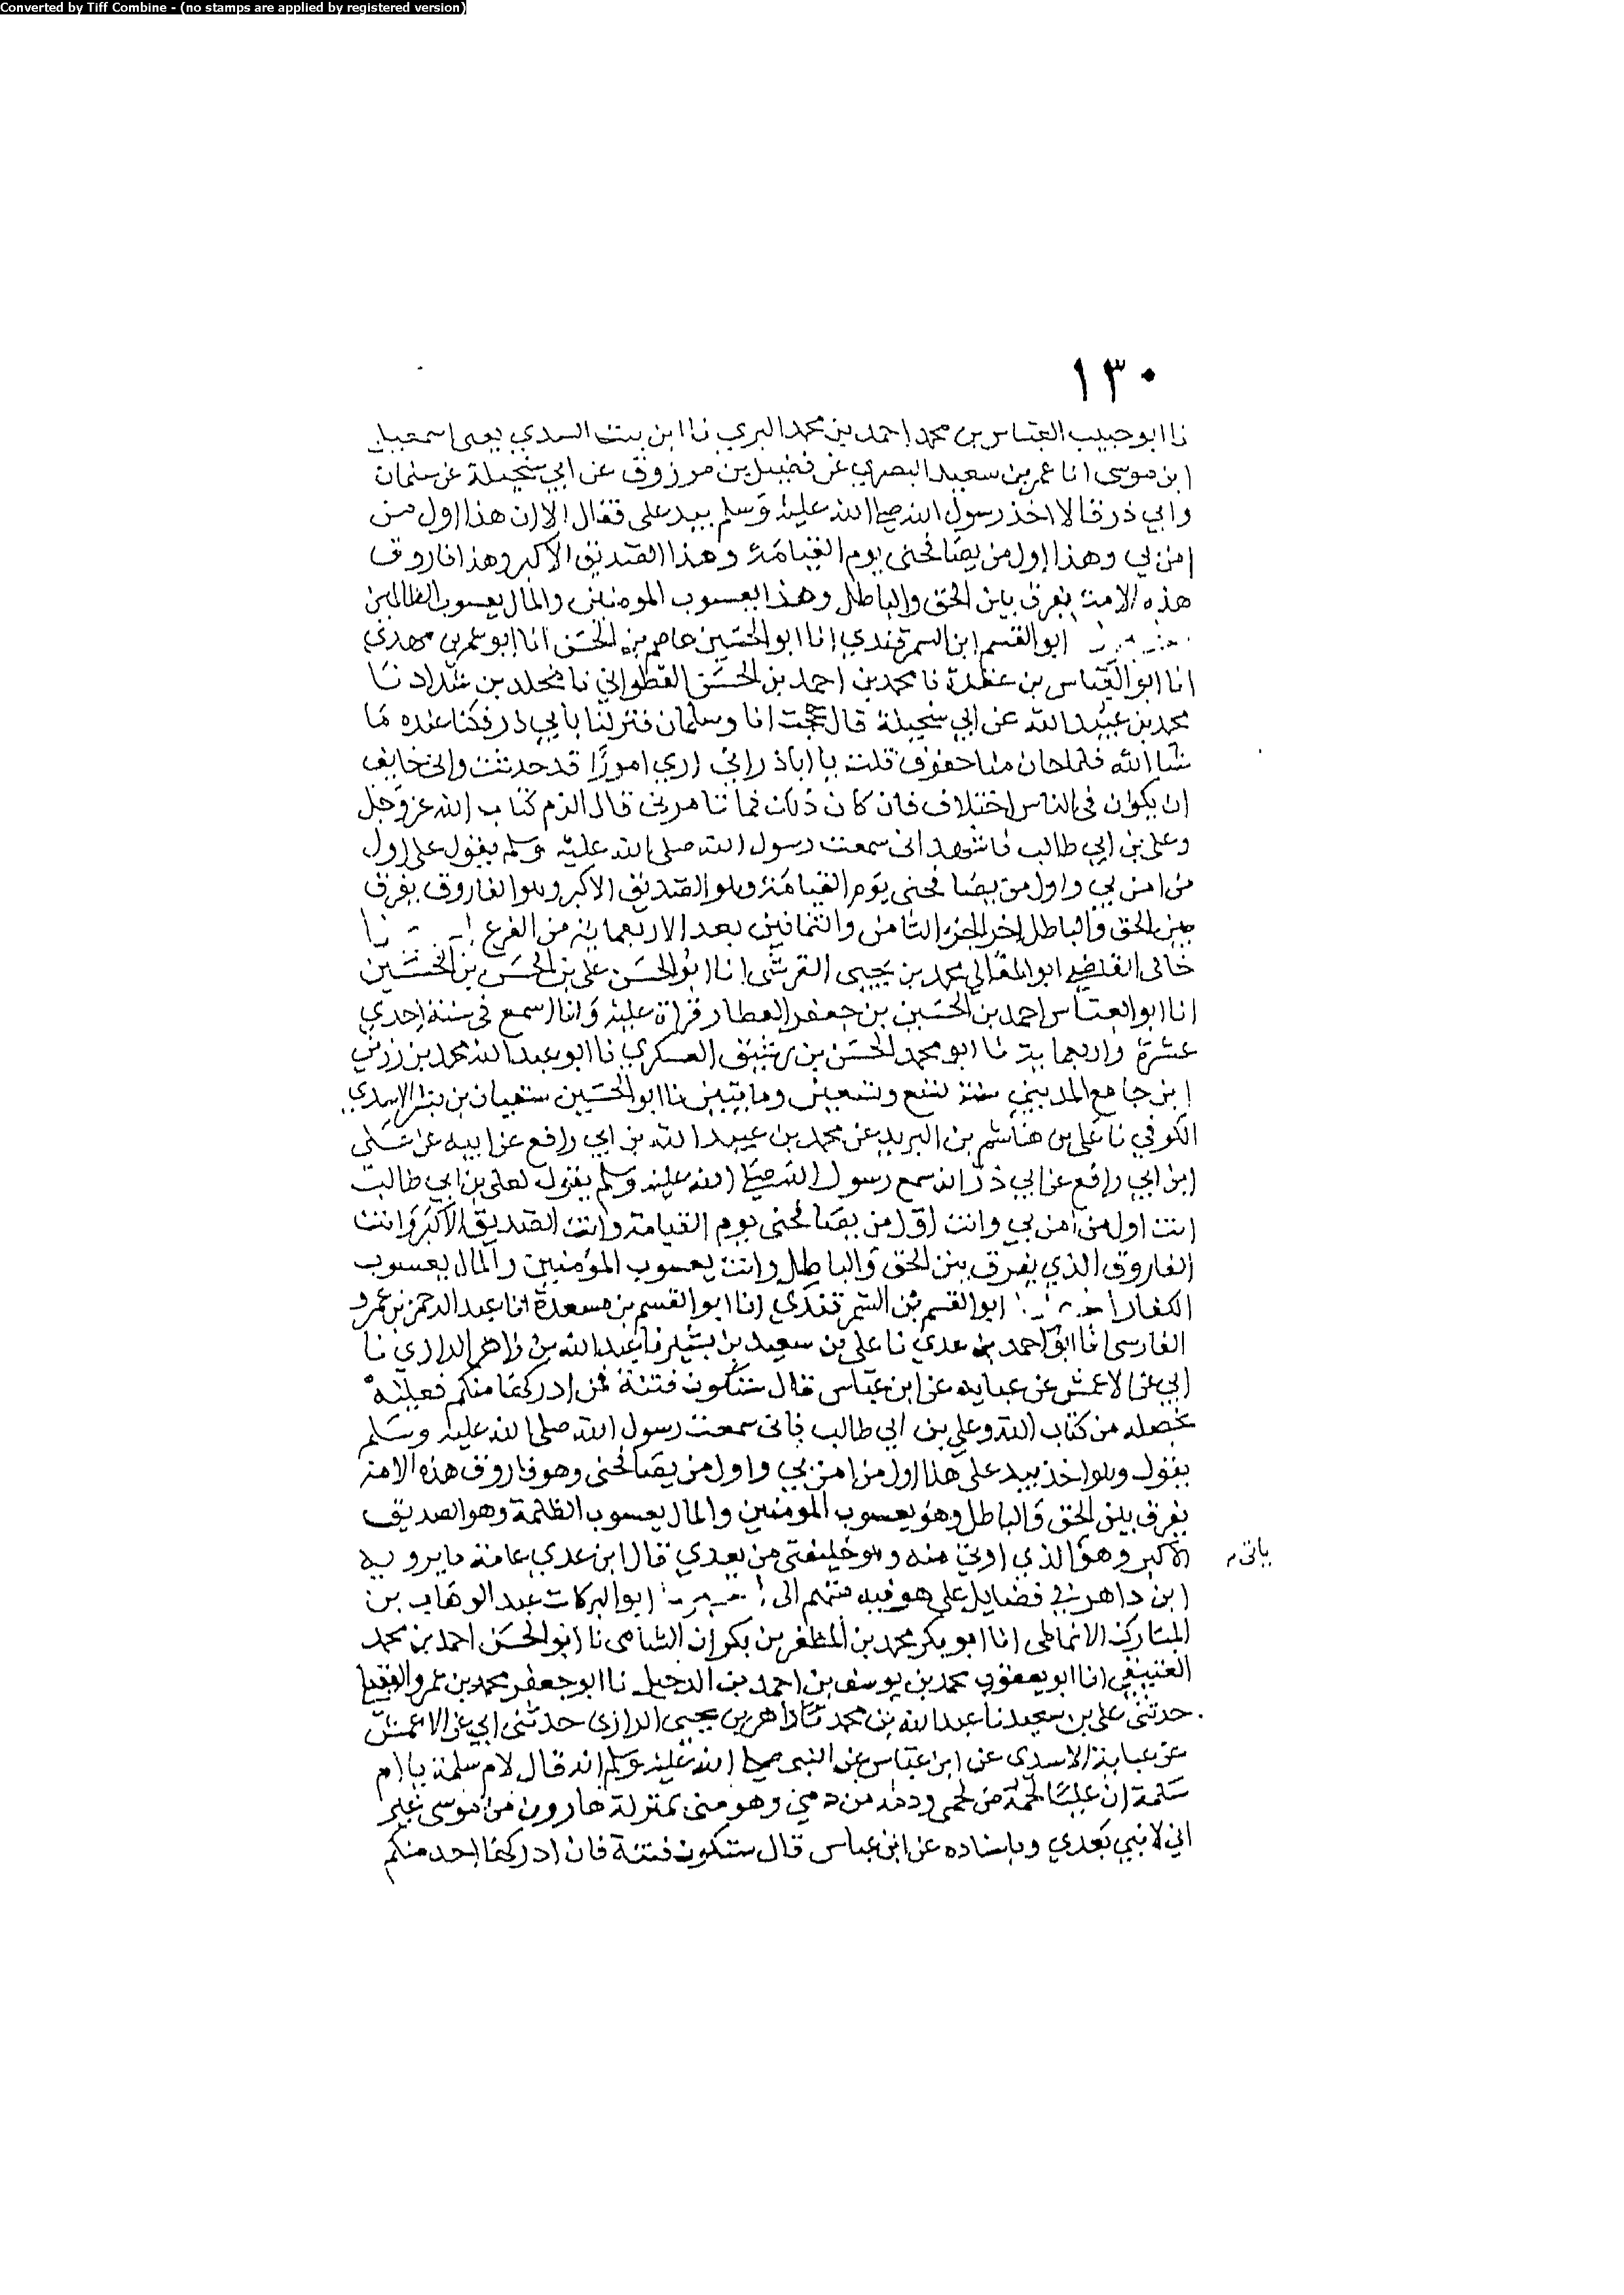 Converted by Tiff Combine - (no stamps are applied by registered version)
١٣٠
نا ابو حبيب العباس بن محمد احمد بن محمد البري نا ابن بنت السدي يعني اسمعيل
ابن موسى انا عمر بن سعيد البصري عن فضيل بن مرزوق عن ابي سخيلة عن سلمان
وابي ذر قالا اخذ رسول الله صلى الله عليه وسلم بيد علي فقال الا ان هذا اول من
امن بي وهذا اول من يصافحنى يوم القيامة وهذا الصديق الاكبر وهذا فاروق
هذه الامة يفرق بين الحق والباطل وهذا يعسوب المومنين والمال يعسوب الظالمين
ابو القسم ابن السمرقندي انا ابو الحسين عاصم بن الحسن انا ابو عمر بن مهدي
انا ابو العباس بن عقدة نا محمد بن احمد بن الحسن القطواني نا مخلد بن شداد نا
محمد بن عبيد الله عن ابي سخيلة قال حججت انا وسلمان فنزلنا بابي ذر فكنا عنده ما
شا الله فلما حان منا حفوف قلت يا اباذر انى ارى امورا قد حدثت وانى خايف
ان يكون فى الناس اختلاف فان كان ذلك فما تامرنى قال الزم كتاب الله عز وجل
وعلى بن ابي طالب فاشهد انى سمعت رسول الله صلى الله عليه وسلم يقول علي اول
من امن بي واول من يصافحنى يوم القيامة وهو الصديق الاكبر وهو الفاروق يفرق
بين الحق والباطل اخر الجزء الثامن والثمانين بعد الاربعماية من الفرع نا
خالى القاضي ابو المعالي محمد بن يحيى القرشى انا ابو الحسن على بن الحسن بن الحسين
انا ابو العباس احمد بن الحسين بن جعفر العطار قراة عليه وانا اسمع فى سنة احدي
عشرة واربعماية نا ابو محمد الحسن بن رشيق العسكري نا ابو عبد الله محمد بن رزين
ابن جامع المديني سنة تسع وتسعين ومايتين نا ابو الحسين سفيان بن بشر الاسدي
الكوفي نا على بن هاشم بن البريد عن محمد بن عبيد الله بن ابي رافع عن ابيه عن على
ابن ابي رافع عن ابي ذر انه سمع رسول الله صلى الله عليه وسلم يقول لعلى بن ابي طالب
انت اول من امن بي وانت اول من يصافحنى يوم القيامة وانت الصديق الاكبر وانت
الفاروق الذي يفرق بين الحق والباطل وانت يعسوب المؤمنين والمال يعسوب
الكفار ابو القسم بن السمرقندي انا ابو القسم بن مسعدة انا عبد الرحمن بن عمرو
الفارسى انا ابو احمد بن عدي نا على بن سعيد بن بشير نا عبد الله بن داهر الرازي نا
ابي عن الاعمش عن عبايه عن ابن عباس قال ستكون فتنة فمن ادركها منكم فعليه
بخصله من كتاب الله وعلي بن ابي طالب فانى سمعت رسول الله صلى الله عليه وسلم
يقول وهو اخذ بيد على هذا اول من امن بي واول من يصافحنى وهو فاروق هذه الامة
يفرق بين الحق والباطل وهو يعسوب المومنين والمال يعسوب الظلمة وهو الصديق
الاكبر وهو الذي اوتى منه وهو خليفتى من بعدي قال ابن عدي عامة ما يرويه
ياتى
ابن داهر في فضايل على هو فيه متهم الى ابو البركات عبد الوهاب بن
المبارك الانماطى انا ابو بكر محمد بن المظفر بن بكران الشامى نا ابو الحسن احمد بن محمد
العتيقي انا ابو يعقوب محمد بن يوسف بن احمد بن الدخيل نا ابو جعفر محمد بن عمرو العقيلي
حدثنى على بن سعيد نا عبد الله بن محمد نا داهر بن يحيى الرازى حدثنى ابي عن الاعمش
عن عباية الاسدى عن ابن عباس عن النبى صلى الله عليه وسلم انه قال لام سلمة يا ام
سلمة ان عليا لحمه من لحمى ودمه من دمي وهو منى بمنزلة هارون من موسى غير
انى لا نبي بعدي وباسناده عن ابن عباس قال ستكون فتنة فان ادركها احد منكم